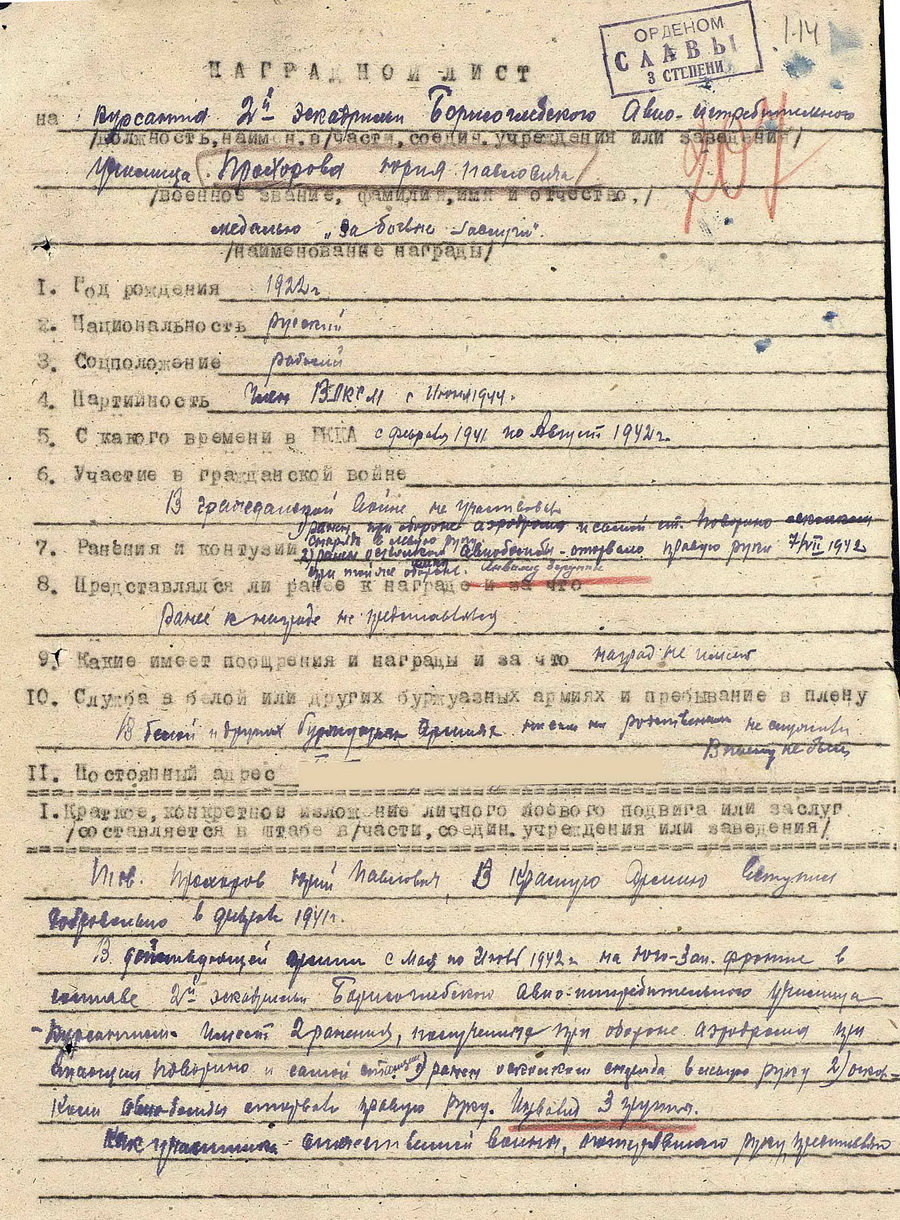 ОРДЕНОМ
СЛАВЫ
3 СТЕПЕНИ
1-14
НАГРАДНОЙ ЛИСТ
на курсанта 2й эскадрильи Борисоглебского Авио-истребительного
/должность, наимен. в/части, соедин. учреждения или заведения/
училища Прохорова Юрия Павловича
/военное звание, фамилия, имя и отчество./
медалью „За боевые заслуги".
/наименование награды/
I. Год рождения 1922 г
2. Национальность русский
3. Соцположение рабочий
4. Партийность член ВЛКСМ с Июня 1944.
5. С какого времени в РККА с февраля 1941 по Август 1942 г.
6. Участие в гражданской войне
В гражданской войне не участвовал
1) ранен при обороне аэродрома и самой ст. Поворино осколком
снаряда в левую руку
7. Ранения и контузии 2) ранен осколком Авиобомбы - оторвало правую руку 7/VII 1942
при той же обороне. Инвалид 3 группы
8. Представлялся ли ранее к награде и за что
Ранее к награде не представлялся
9. Какие имеет поощрения и награды и за что наград не имеет
10. Служба в белой или других буржуазных армиях и пребывание в плену
В белой и других буржуазных армиях не служил
В плену не был
II. Постоянный адрес
I. Краткое, конкретной изложение личного боевого подвига или заслуг
/составляется в штабе в/части, соедин. учреждения или заведения/
Тов. Прохоров Юрий Павлович, в Красную Армию вступил
добровольно в феврале 1941 г.
В действующей армии с Мая по Июль 1942 г на Юго-Зап. фронте в
составе 2й эскадрильи Борисоглебского Авио-истребительного училища
- курсантом. Имеет 2 ранения, полученные при обороне аэродрома при
станции Поворино и самой станции 1) ранен осколком снаряда в левую руку 2) оскол-
ком авио-бомбы оторвало правую руку. Инвалид 3 группы.
Как участника отечественной войны, потерявшего руку, представляю